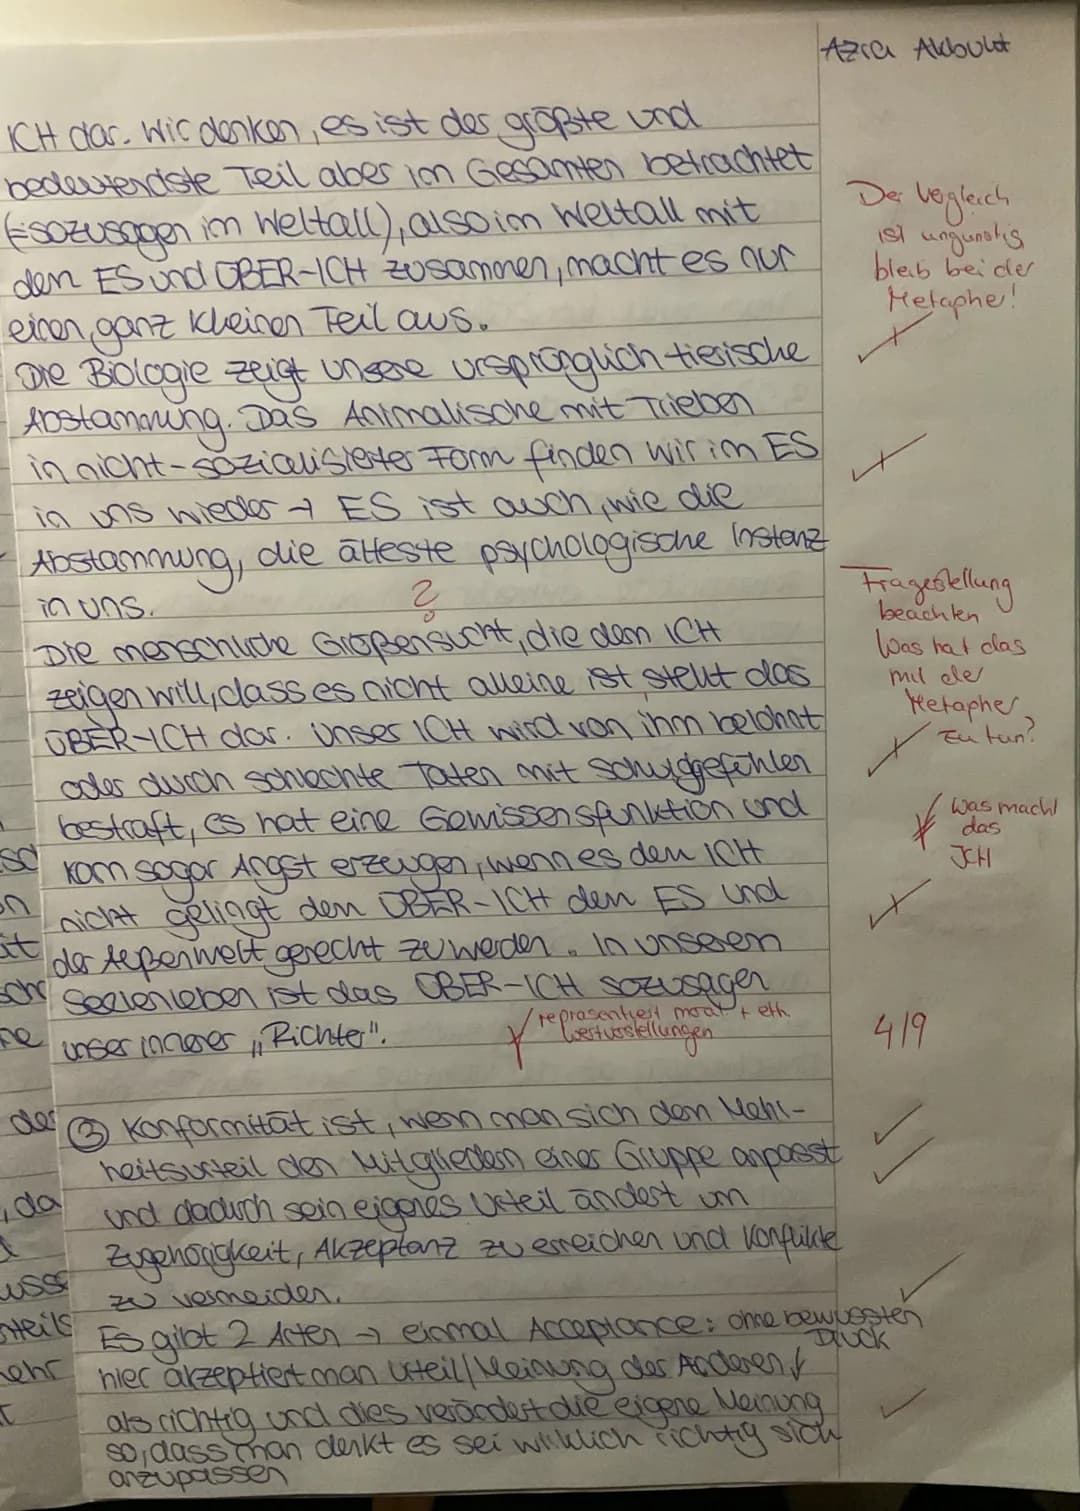 Azra Akbulut
ICH dar. Wir denken, es ist der größte und
bedeutendste Teil aber im Gesamten betrachtet
(=sozusagen im Weltall), also im Weltall mit
dem ES und ÜBER-ICH zusammen, macht es nur
einen ganz kleinen Teil aus.
Der Vergleich
ist ungünstig
bleib bei der
Metapher!
Die Biologie zeigt unsere ursprünglich tierische
Abstammung. Das Animalische mit Trieben
in nicht-sozialisierter Form finden wir im ES
in uns wieder → ES ist auch, wie die
Abstammung, die älteste psychologische Instanz
in uns.
?
Die menschliche Größensucht, die dem ICH
zeigen will, dass es nicht alleine ist stellt das
ÜBER-ICH dar. Unser ICH wird von ihm belohnt
oder durch schlechte Taten mit Schuldgefühlen
bestraft, es hat eine Gewissensfunktion und
kann sogar Angst erzeugen, wenn es dem ICH
nicht gelingt dem ÜBER-ICH dem ES und
der Außenwelt gerecht zu werden. In unserem
Seelenleben ist das ÜBER-ICH sozusagen
unser innerer „Richter".
Fragestellung
beachten
Was hat das
mit der
Metapher
zu tun?
Was macht
das
ICH
repräsentiert moral + eth.
Wertvorstellungen
4/9
③ Konformität ist, wenn man sich dem Mehr-
heitsurteil den Mitgliedern einer Gruppe anpasst
und dadurch sein eigenes Urteil ändert um
Zugehörigkeit, Akzeptanz zu erreichen und Konflikte
zu vermeiden.
Es gibt 2 Arten → einmal Acceptance: ohne bewussten
Druck
hier akzeptiert man Urteil/Meinung der Anderen
als richtig und dies verändert die eigene Meinung
so, dass man denkt es sei wirklich richtig sich
anzupassen